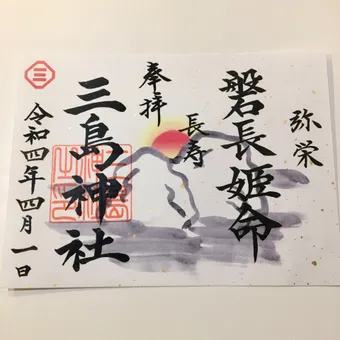 弥栄
磐長姫命
奉拝
長寿
三島神社
令和四年四月一日